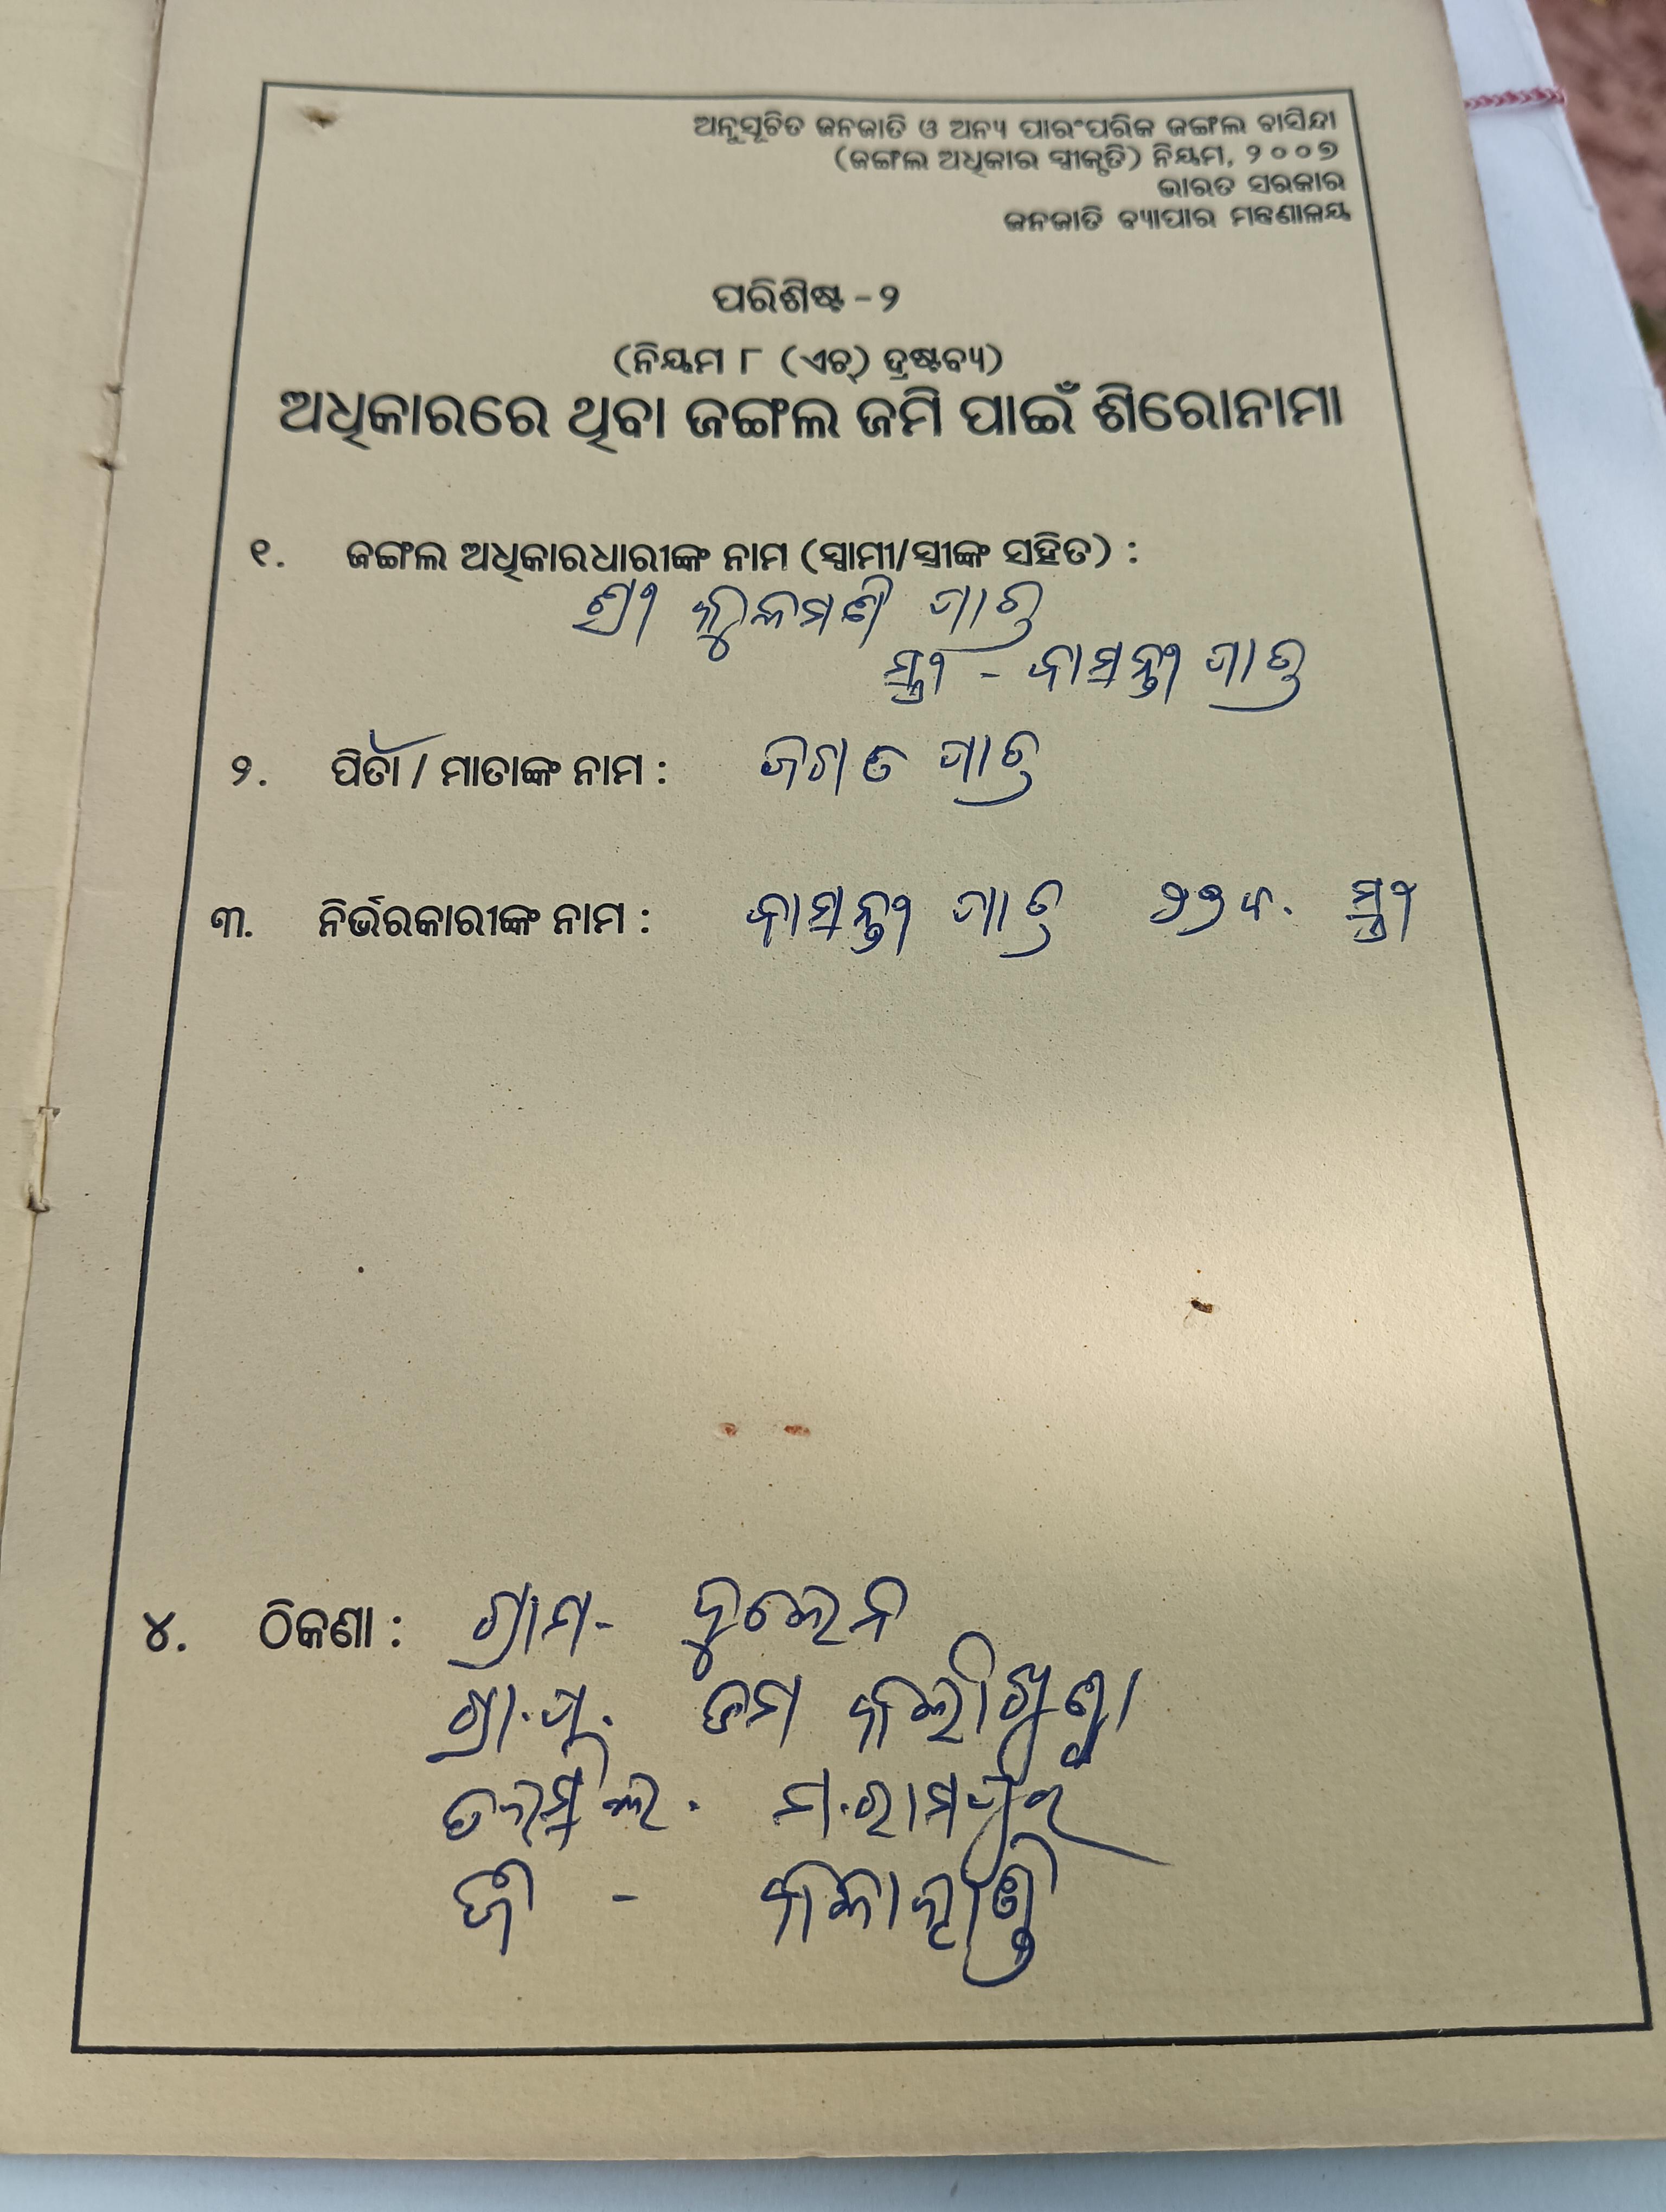 ଅନୁସୂଚିତ ଜନଜାତି ଓ ଅନ୍ୟ ପାରଂପରିକ ଜଙ୍ଗଲ ବାସିନ୍ଦା
(ଜଙ୍ଗଲ ଅଧିକାର ସ୍ୱୀକୃତି) ନିୟମ, ୨୦୦୭
ଭାରତ ସରକାର
ଜନଜାତି ବ୍ୟାପାର ମନ୍ତ୍ରଣାଳୟ
ପରିଶିଷ୍ଟ - ୨
(ନିୟମ ୮ (ଏଚ୍) ଦ୍ରଷ୍ଟବ୍ୟ)
ଅଧିକାରରେ ଥିବା ଜଙ୍ଗଲ ଜମି ପାଇଁ ଶିରୋନାମା
୧. ଜଙ୍ଗଲ ଅଧିକାରଧାରୀଙ୍କ ନାମ (ସ୍ୱାମୀ/ସ୍ତ୍ରୀଙ୍କ ସହିତ) :
ଶ୍ରୀ କୁଳମଣି ପାତ୍ର
ସ୍ତ୍ରୀ - ବାସନ୍ତୀ ପାତ୍ର
୨. ପିତା / ମାତାଙ୍କ ନାମ : ଜଗତ ପାତ୍ର
୩. ନିର୍ଭରକାରୀଙ୍କ ନାମ : ବାସନ୍ତୀ ପାତ୍ର ସ୍ତ୍ରୀ
୪. ଠିକଣା : ଗ୍ରାମ-
ଗ୍ରା.ପ.
ମ.ରାମପୁର
ଜି - କଳାହାଣ୍ଡି